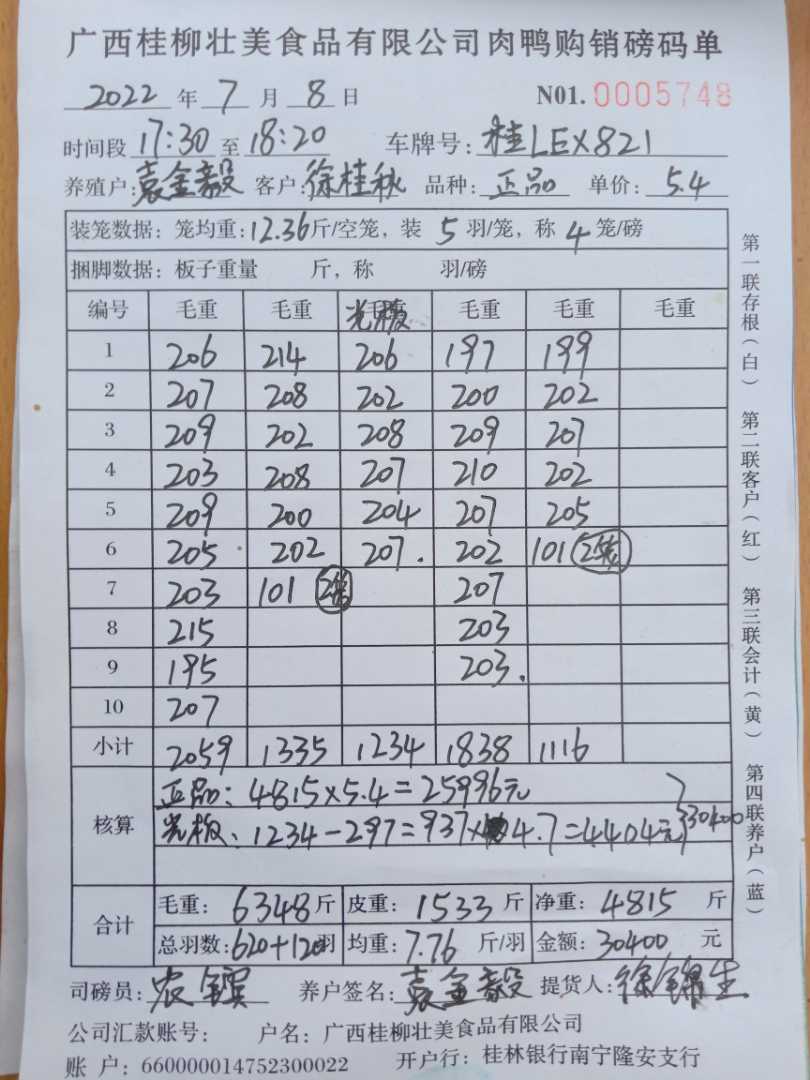 广西桂柳壮美食品有限公司肉鸭购销磅码单
2022 年 7 月 8 日 N01. 0005748
时间段 17:30 至 18:20 车牌号: 桂LEX821
养殖户: 袁金毅 客户: 徐桂秋 品种: 正品 单价: 5.4
装笼数据: 笼均重: 12.36 斤/空笼, 装 5 羽/笼, 称 4 笼/磅
捆脚数据: 板子重量 斤, 称 羽/磅
编号 毛重 毛重 光板 毛重 毛重 毛重
1 206 214 206 197 199
2 207 208 202 200 202
3 209 202 208 209 207
4 203 208 207 210 202
5 209 200 204 207 205
6 205 202 207. 202 101 2笼
7 203 101 2笼 207
8 215 203
9 195 203.
10 207
小计 2059 1335 1234 1838 1116
核算
正品: 4815×5.4=25996元
光板: 1234-297=937×4.7=4404元 30400
合计
毛重: 6348 斤 皮重: 1533 斤 净重: 4815 斤
总羽数: 620+120 羽 均重: 7.76 斤/羽 金额: 30400 元
司磅员: 养户签名: 袁金毅 提货人:
公司汇款账号: 户名: 广西桂柳壮美食品有限公司
账 户: 660000014752300022 开户行: 桂林银行南宁隆安支行
第一联存根(白) 第二联客户(红) 第三联会计(黄) 第四联养户(蓝)